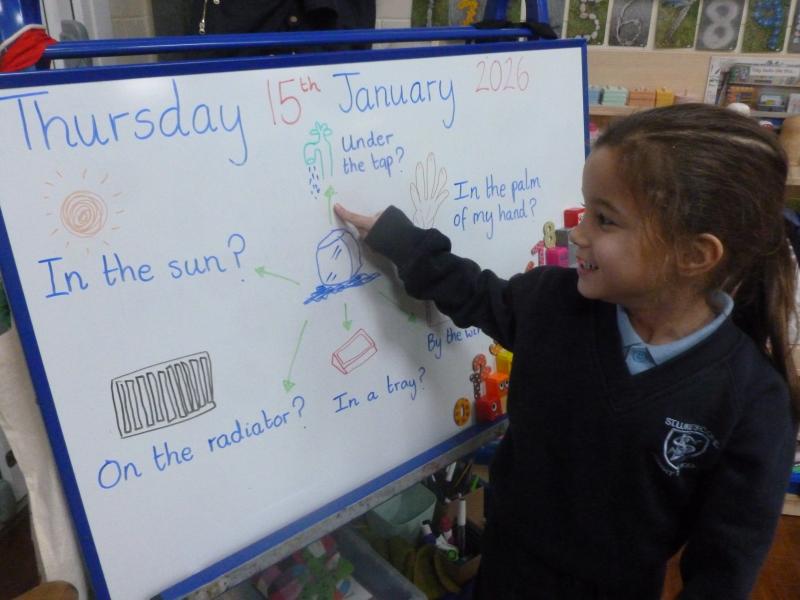 Thursday 15th January 2026
Under
the tap?
In the palm
of my hand?
In the sun?
By the
In a tray?
On the radiator?